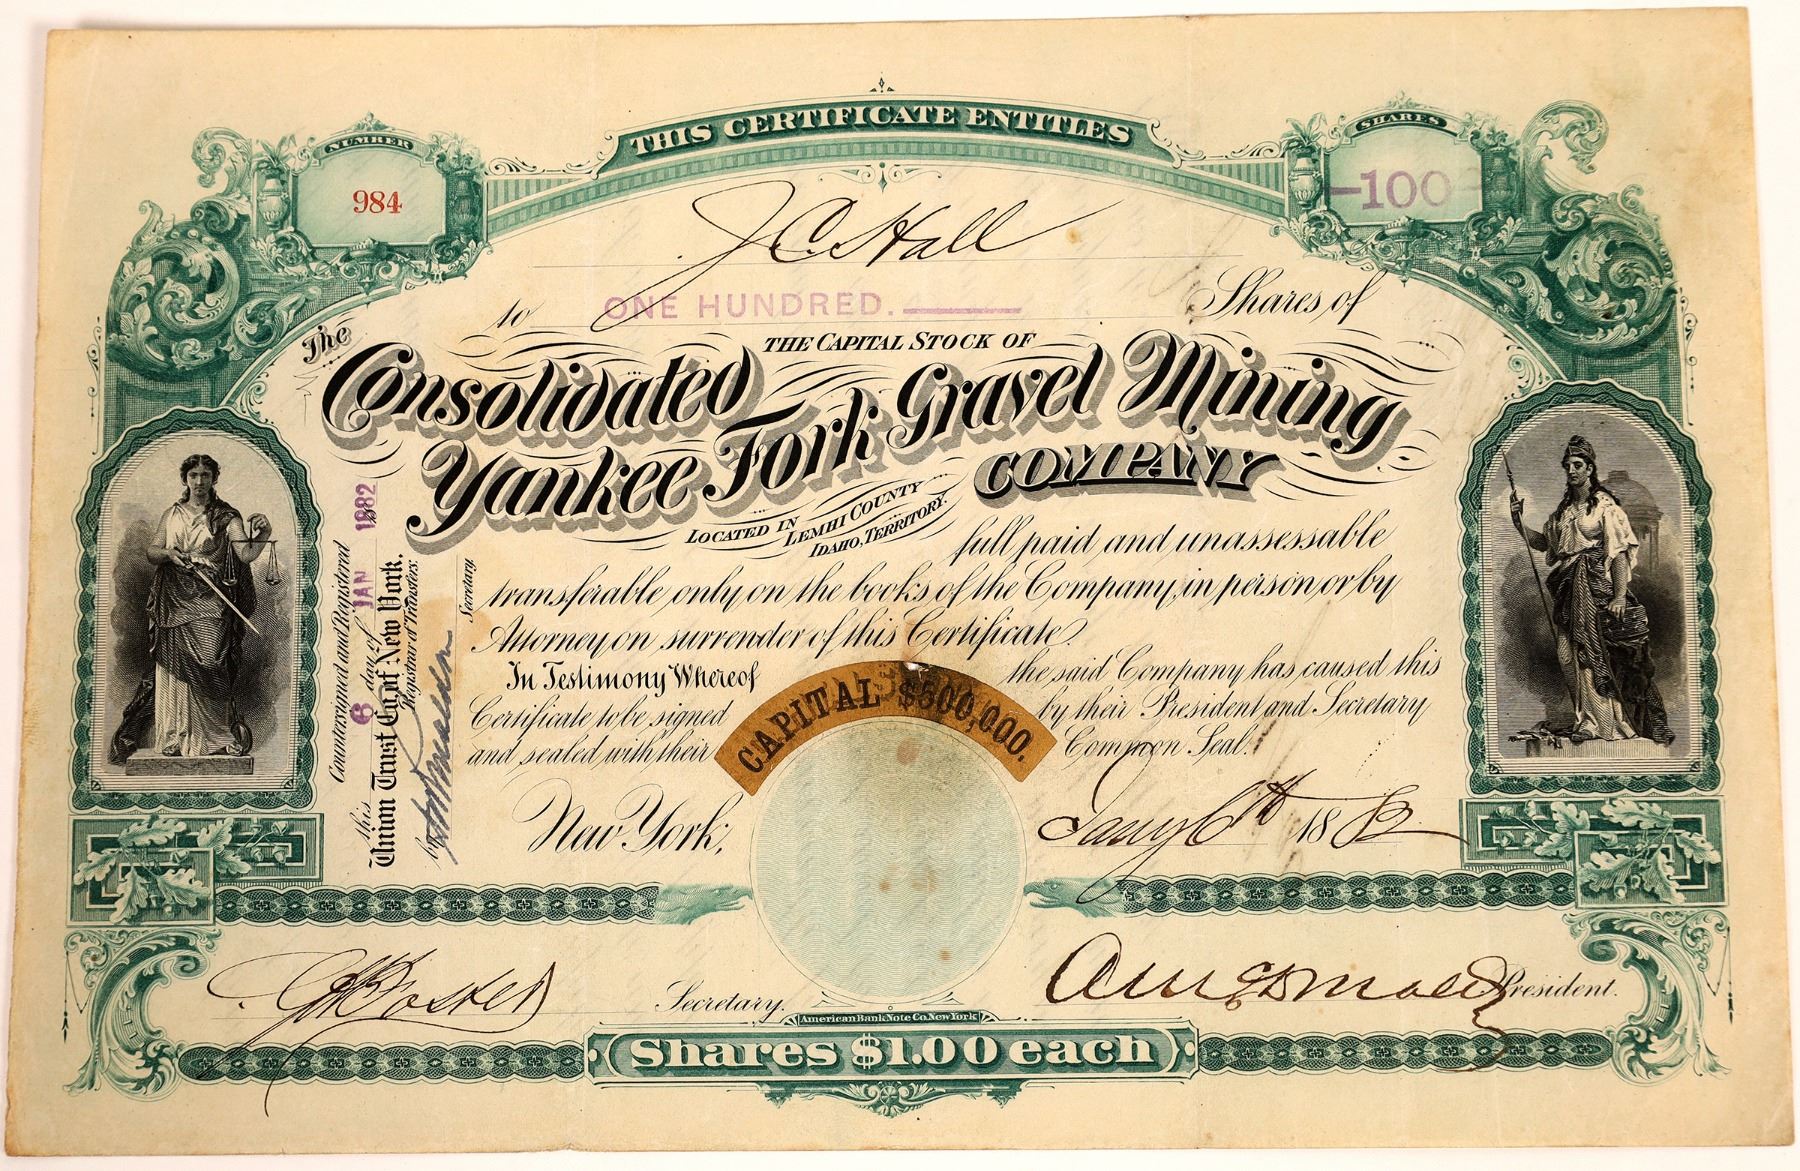 THIS CERTIFICATE ENTITLES
NUMBER
984
SHARES
-100-
J C Hall
to ONE HUNDRED. Shares of
THE CAPITAL STOCK OF
The Consolidated Yankee Fork Gravel Mining COMPANY
LOCATED IN LEMHI COUNTY IDAHO, TERRITORY.
full paid and unassessable
transferable only on the books of the Company, in person or by
Attorney on surrender of this Certificate.
In Testimony Whereof the said Company has caused this
Certificate to be signed by their President and Secretary
and sealed with their Common Seal.
CAPITAL $500,000.
New York, Jany 6th 1882
Countersigned and Registered
this 6 day of JAN 1882
Union Trust Co. of New York.
Registrar of Transfers.
by
Secretary
Secretary.
President.
American Bank Note Co. New York
Shares $1.00 each